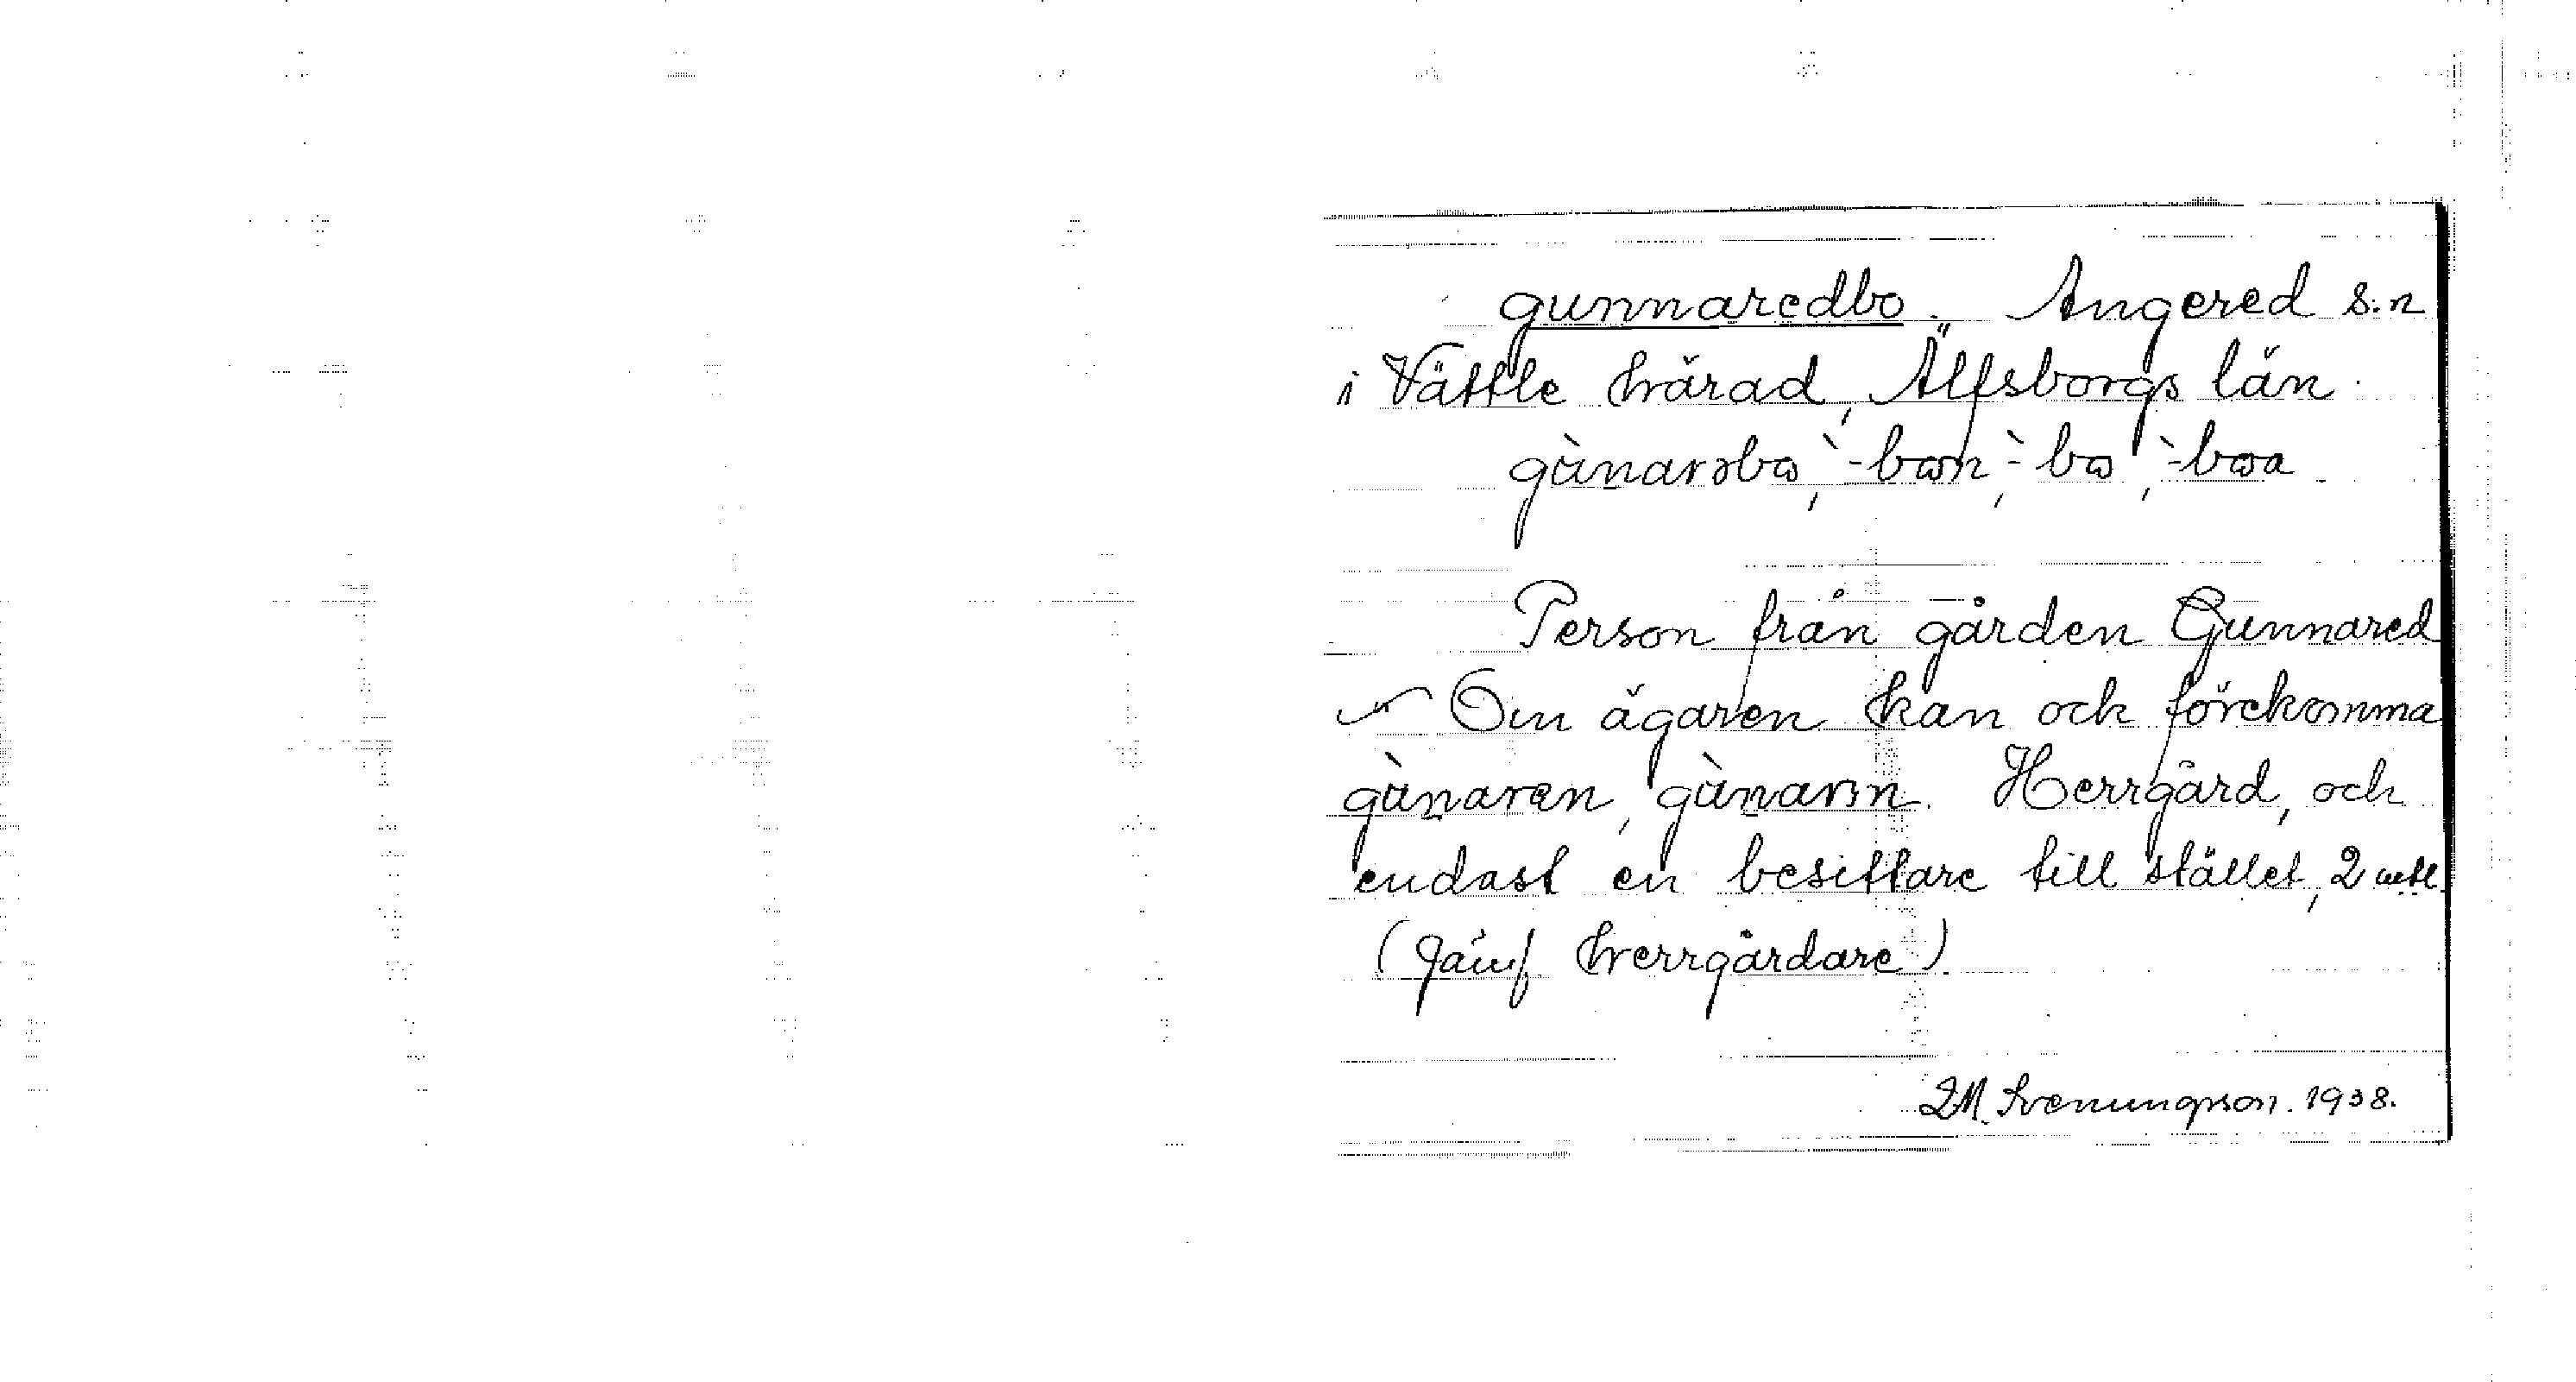 gunnaredbo. Angered s:n
i Vättle härad, Älfsborgs län.
gùnarəbɷ, `-bɷn, `-bɷ, `-bɷa
Person från gården Gunnared
Om ägaren kan ock förekomma
gùnaren, gùnarn. Herrgård, och
endast en besittare till stället, 2 mtl
(Jämf. herrgårdare)
Svenungsson. 1938.